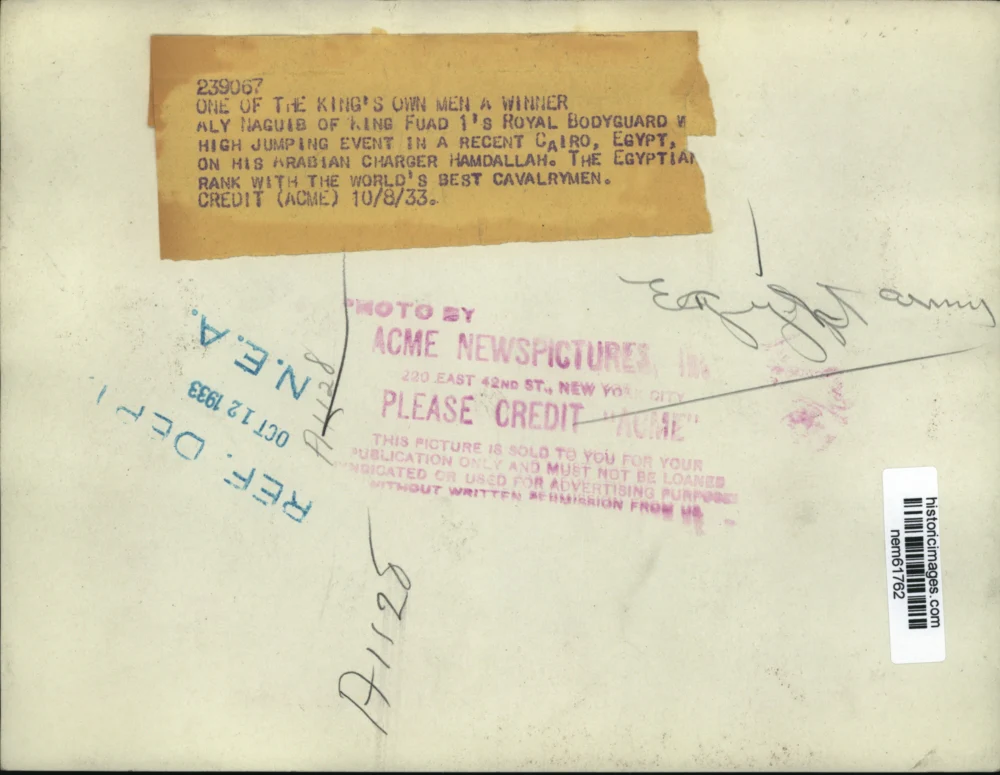 239067
ONE OF THE KING'S OWN MEN A WINNER
ALY NAGUIB OF KING FUAD 1'S ROYAL BODYGUARD W
HIGH JUMPING EVENT IN A RECENT CAIRO, EGYPT,
ON HIS ARABIAN CHARGER HAMDALLAH. THE EGYPTIAN
RANK WITH THE WORLD'S BEST CAVALRYMEN.
CREDIT (ACME) 10/8/33.
army
PHOTO BY
ACME NEWSPICTURES, INC
220 EAST 42ND ST., NEW YORK CITY
PLEASE CREDIT "ACME"
THIS PICTURE IS SOLD TO YOU FOR YOUR
PUBLICATION ONLY AND MUST NOT BE LOANED
SYNDICATED OR USED FOR ADVERTISING PURPOSES
WITHOUT WRITTEN PERMISSION FROM US
REF. DEPT
OCT 12 1933
N.E.A.
A1128
A1128
historicimages.com
nem61762